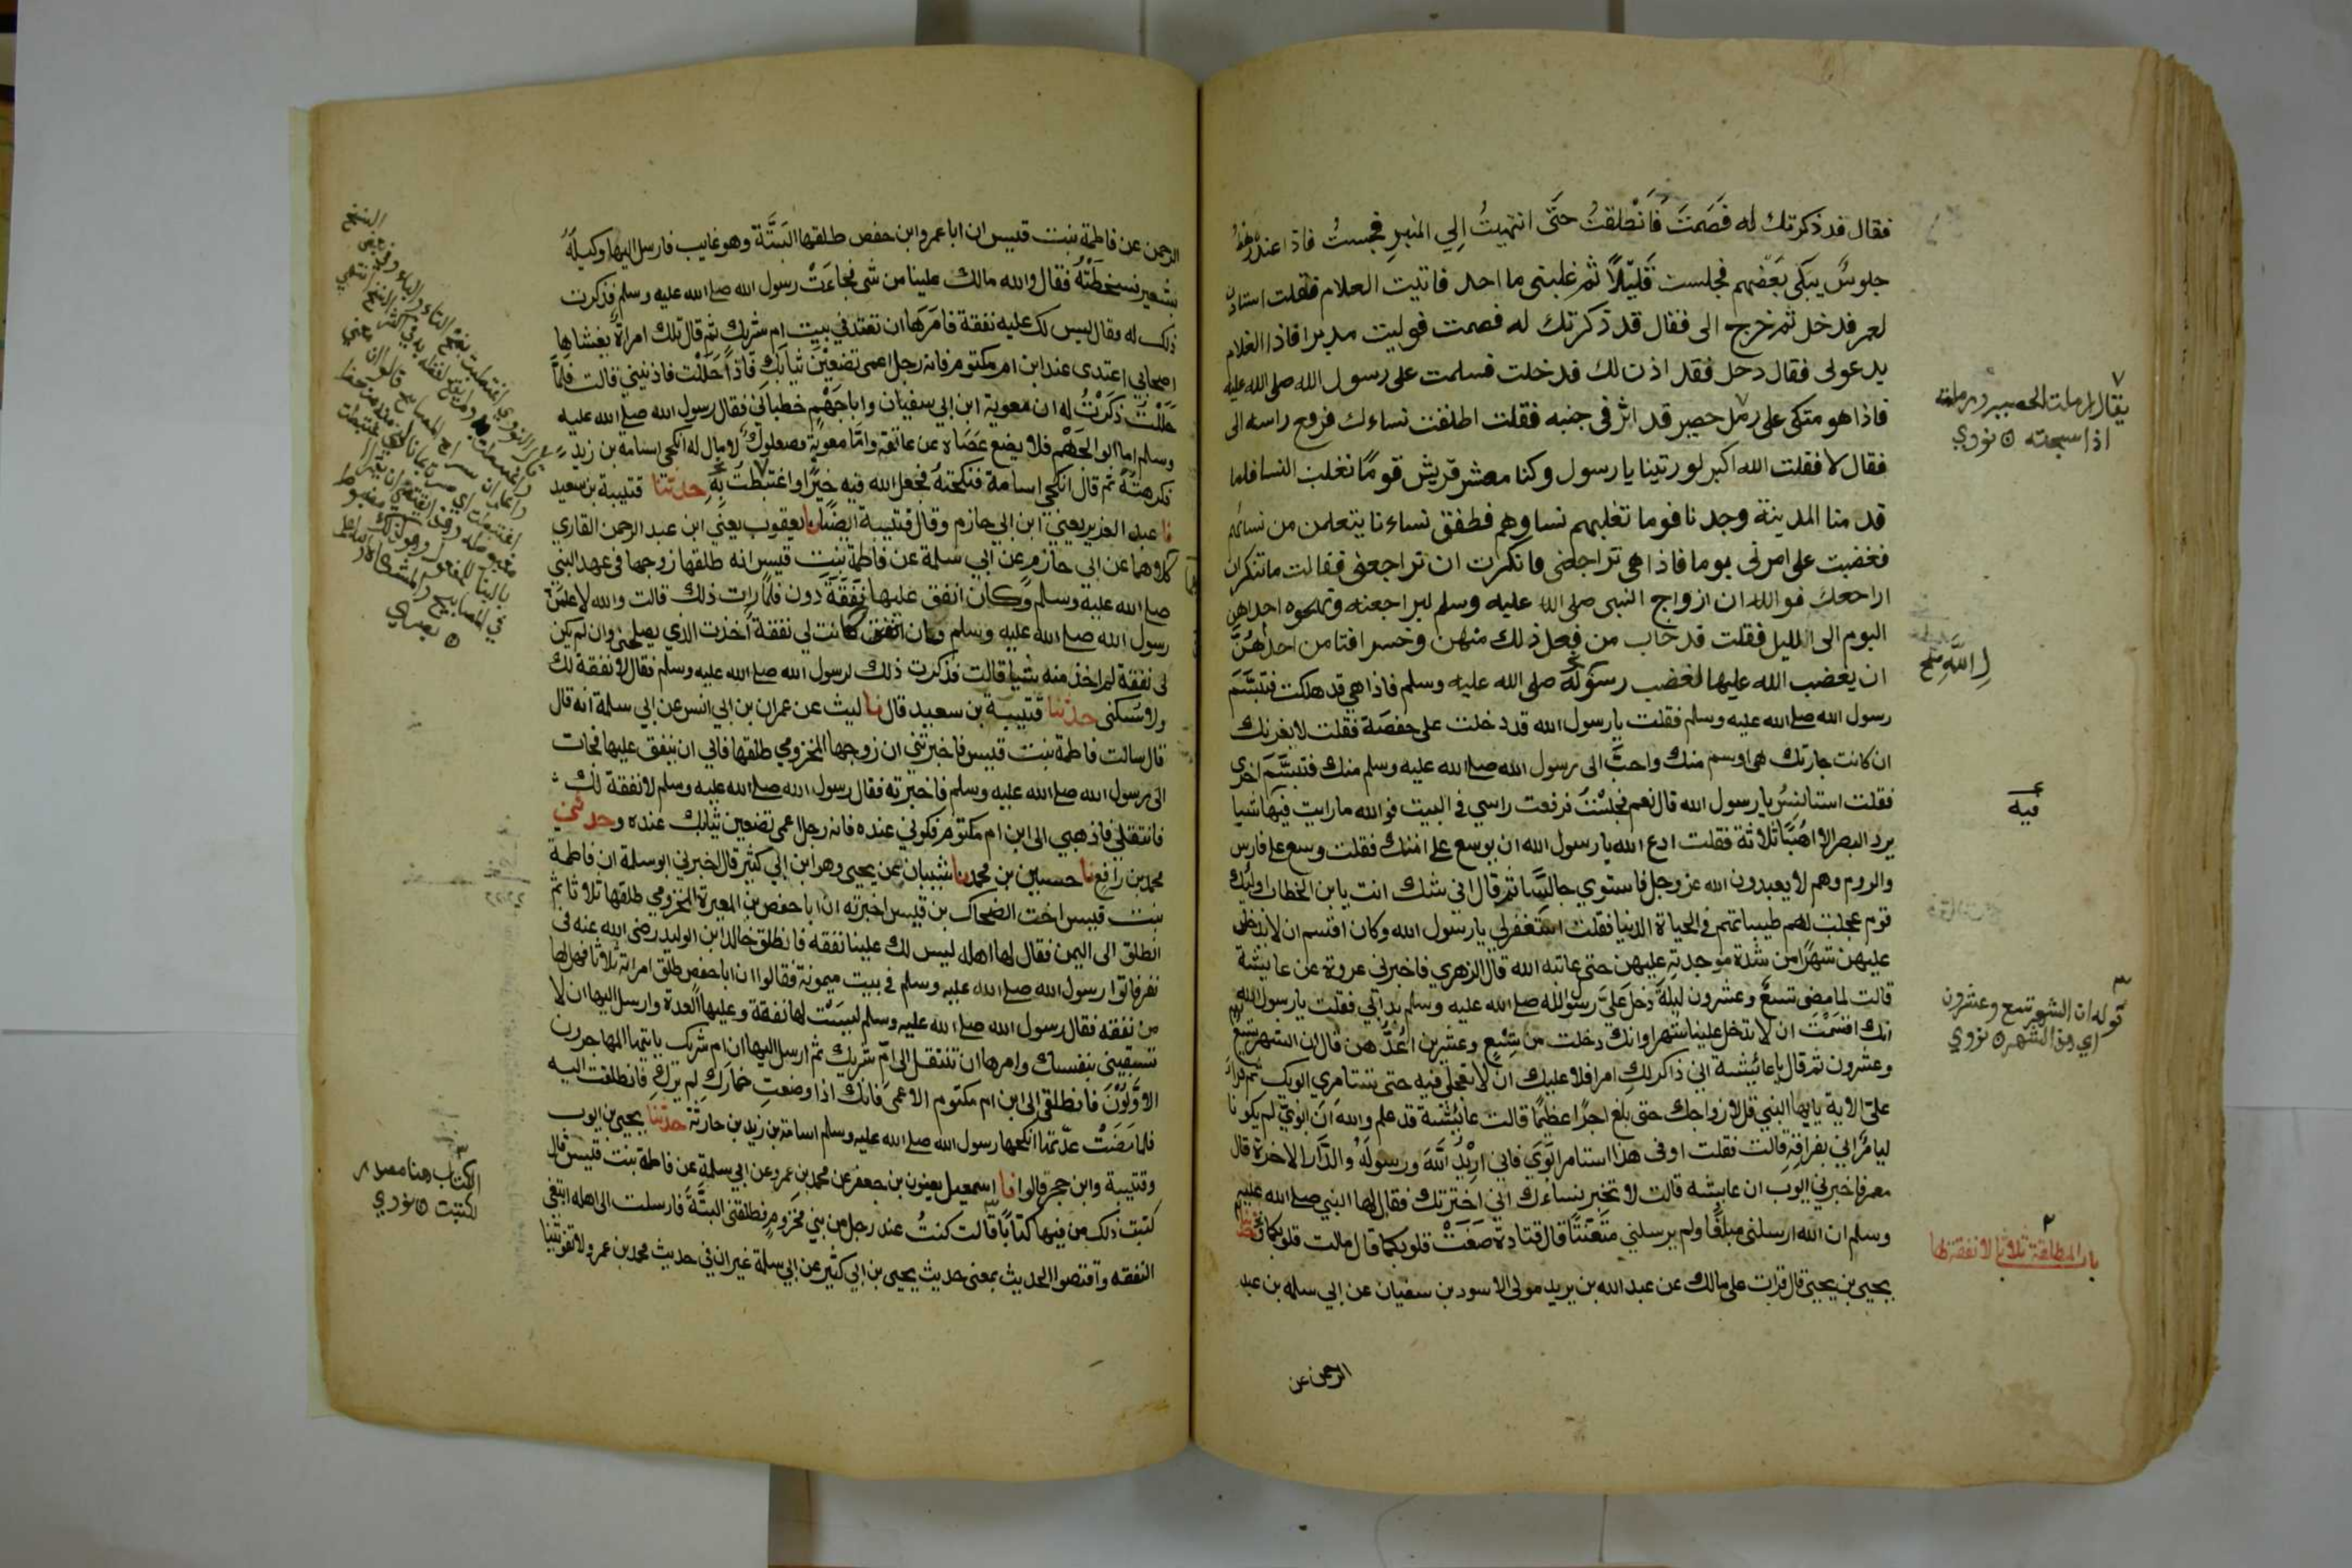 فقال قد ذكرتك له فَصَمتَ فَانْطلقتُ حتَّى انتهيتُ إلي المنبر فجلستُ فاذا عنده رهط
جلوسٌ يبكى بَعْضهم فجلست قَلِيْلًا ثم غلبنى ما اجد فاتيت الغلام فقلت استاذن
لعمر فدخل ثم خرج الى فقال قد ذكرتك له فصمت فوليت مدبرا فاذا الغلام
يدعونى فقال دخل فقد اذن لك فدخلت فسلمت على رسول الله صلى الله عليه
فاذا هو متكى على رمل حصير قد اثر فى جنبه فقلت اطلقت نساءك فرفع راسه الى
فقال لا فقلت الله اكبر لو رتينا يا رسول وكنا معشر قريش قومًا نغلب النسا فلما
قد منا المدينة وجدنا قوما تغلبهم نساوهم فطفق نساءنا يتعلمن من نسائهم
فغضبت على امرتى يوما فاذا هى تراجعنى فانكرت ان تراجعنى فقالت ما تنكر ان
اراجعك فو الله ان ازواج النبى صلى الله عليه وسلم ليراجعنه وتهجره احداهن
اليوم الى الليل فقلت قد خاب من فعل ذلك منهن وخسر افتا من احدٰهُنَّ
ان يغضب الله عليها لغضب رسوله صلى الله عليه وسلم فاذا هى قد هلكت فتبسَّم
رسول الله صلى الله عليه وسلم فقلت يا رسول الله قد دخلت على حفصة فقلت لا يغرنك
ان كانت جارتك هى اوسم منك واحبَّ الى رسول الله صلى الله عليه وسلم منك فتبسَّمَ اخرى
فقلت استانِسُ يا رسول الله قال نعم فجلسْتُ فرفعت راسي في البيت فو الله ما رايت فيها شيا
يرد البصر الا اُهُبًا ثلاثة فقلت ادع الله يا رسول الله ان يوسع على امتك فقلت وسع على فارس
والروم وهم لا يعبدون الله عز وجل فاستوي جالسًا ثم قال افى شك انت يابن الخطاب اوليك
قوم عجلت لهم طيباتهم في الحياة الدنيا فقلت استغفر لي يا رسول الله وكان اقسم ان لا يدخل
عليهن شهرًا من شدة موجدتِهِ عليهن حتى عاتبه الله قال الزهري فاخبرني عروة عن عايشة
قالت لما مضى تسعٌ وعشرون ليلةً دخل عَلَيَّ رسول الله صلى الله عليه وسلم بدا بي فقلت يا رسول الله
انك اقسَمْتَ ان لا تدخل علينا شهرا وانك دخلت من تِسْعٍ وعشرين اَعُدُّهن قال ان الشهر تسع
وعشرون ثم قال يا عائشة انى ذاكر لكِ امرا فلا عليك ان لا تعجلي فيه حتى تستامري ابويك ثم قرا
عليّ الاية يايها النبي قل لازواجك حتى بلغ اجرًا عظيمًا قالت عايشة قد علم والله ان ابويّ لم يكونا
ليامُرَاني بفراقِهِ قالت فقلت اوفى هذا استامر ابَوَيّ فاني اريد اللهَ ورسولَهُ والدَّار الاخرة قال
معمر فاخبرني ايوب ان عايشه قالت لا تخبر نساءك اني اخترتك فقال لها النبي صلى الله عليه
وسلم ان الله ارسلنى مبلغًا ولم يرسلني مُتَعَنِّتًا قال قتادة صَغَتْ قلوبكما قال مالت قلوبكما
يحيى بن يحيى قال قرات على مالك عن عبد الله بن يزيد مولى الاسود بن سفيان عن ابي سلمه بن عبد
الرحمن عن
يقال رملت الحصير وارملته
اذا نسجته ۞ نووي
فيه
قوله ان الشهر تسع وعشرون
اي هذا الشهر ۞ نووي
باب المطلقة ثلاثا لا نفقة لها
الرحمن عن فاطمة بنت قيس ان ابا عمرو ابن حفص طلقها البَتَّةَ وهو غايب فارسل اليها وكيلَهُ
بشعير فسخطَتْهُ فقال والله مالك علينا من شى فجاءَتْ رسول الله صلى الله عليه وسلم فذكرت
ذلك له وقال ليس لك عليه نفقة فامَرَها ان تعتد في بيت ام شريك ثم قال تلك امراة يغشاها
اصحابي اعتدى عند ابن ام مكتوم فانه رجل اعمى تضعِيْنَ ثيابَكِ فاذا حَلَلْت فاذنيني قالت فلمّا
حَلَلْتُ ذكَرْتُ له ان معوية ابن ابي سفيان وابا جَهْم خطباني فقال رسول الله صلى الله عليه
وسلم اما ابو الجَهْم فلا يضع عَصَاه عن عاتقه وامّا معوية فصعلوك لا مال له انكحى اسامة بن زيد
فكرهتُهُ ثم قال انكحى اسامة فنكحتهُ فجعل الله فيه خيرًا واغتبَطْتُ بِهِ حدثنا قتيبة بن سعيد
نا عبد العزيز يعني ابن ابي حازم وقال قتيبة ايضًا نا يعقوب يعني ابن عبد الرحمن القاري
كلاهما عن ابي حازم عن ابي سلمة عن فاطمة بنت قيس انه طلقها زوجها فى عهد النبي
صلى الله عليه وسلم وكان انفق عليها نَفَقَةَ دون فلمَّا رات ذلك قالت والله لاعلمَنَّ
رسول الله صلى الله عليه وسلم فان كانت لي نفقة اخذت الذي يصلحنى وان لم تكن
لى نفقة لم اخذ منه شيا قالت فذكرت ذلك لرسول الله صلى الله عليه وسلم فقال لا نفقة لك
ولا سُكنى حدثنا قتيبة بن سعيد قال نا ليث عن عمران بن ابي انس عن ابي سلمة انه قال
قال سالت فاطمة بنت قيس فاخبرتني ان زوجها المخزومي طلقها فابى ان ينفق عليها فجات
الى رسول الله صلى الله عليه وسلم فاخبرته فقال رسول الله صلى الله عليه وسلم لا نفقة لك
فانتقلي فاذهبي الى ابن ام مكتوم فكوني عنده فانه رجل اعمى تضعين ثيابك عنده وحدثني
محمد بن رافع نا حسين بن محمد نا شيبان عن يحيى وهو ابن ابي كثير قال اخبرني ابو سلمة ان فاطمة
بنت قيس اخت الضحاك بن قيس اخبرته ان ابا حفص بن المغيرة المخزومي طلقها ثلاثا ثم
انطلق الى اليمن فقال لها اهله ليس لك علينا نفقه فانطلق خالد ابن الوليد رضى الله عنه فى
نفر فاتوا رسول الله صلى الله عليه وسلم في بيت ميمونة فقالوا ان ابا حفص طلق امراته ثلاثا فهل لها
من نفقه فقال رسول الله صلى الله عليه وسلم ليسَتْ لها نفقة وعليها العدة وارسل اليها ان لا
تسبقيني بنفسك وامرها ان تنتقل الى ام شريك ثم ارسل اليها ان ام شريك ياتيها المهاجرون
الاوَّلُوْنَ فانطلقى الى ابن ام مكتوم الاعمى فانك اذا وضعتِ خمارَكِ لم يَرَكِ فانطلقت اليه
فلما مَضَتْ عدَّتها انكحها رسول الله صلى الله عليه وسلم اسامة بن زيد بن حارثة حدثنا يحيى بن ايوب
وقتيبة وابن حجر قالوا نا اسمعيل يعنون بن جعفر عن محمد بن عمرو عن ابي سلمة عن فاطمة بنت قيس قال
كتبت ذلك من فيها كتابًا قالت كنتُ عند رجل من بني مخزوم فطلقنى البتَّةَ فارسلت الى اهله ابتغى
النفقه واقتصوا الحديث بمعنى حديث يحيى بن ابي كثير عن ابي سلمة غير ان في حديث محمد بن عمرو لا تفوتينا
الكتاب هنا مصدر
لكتبت ۞ نووي